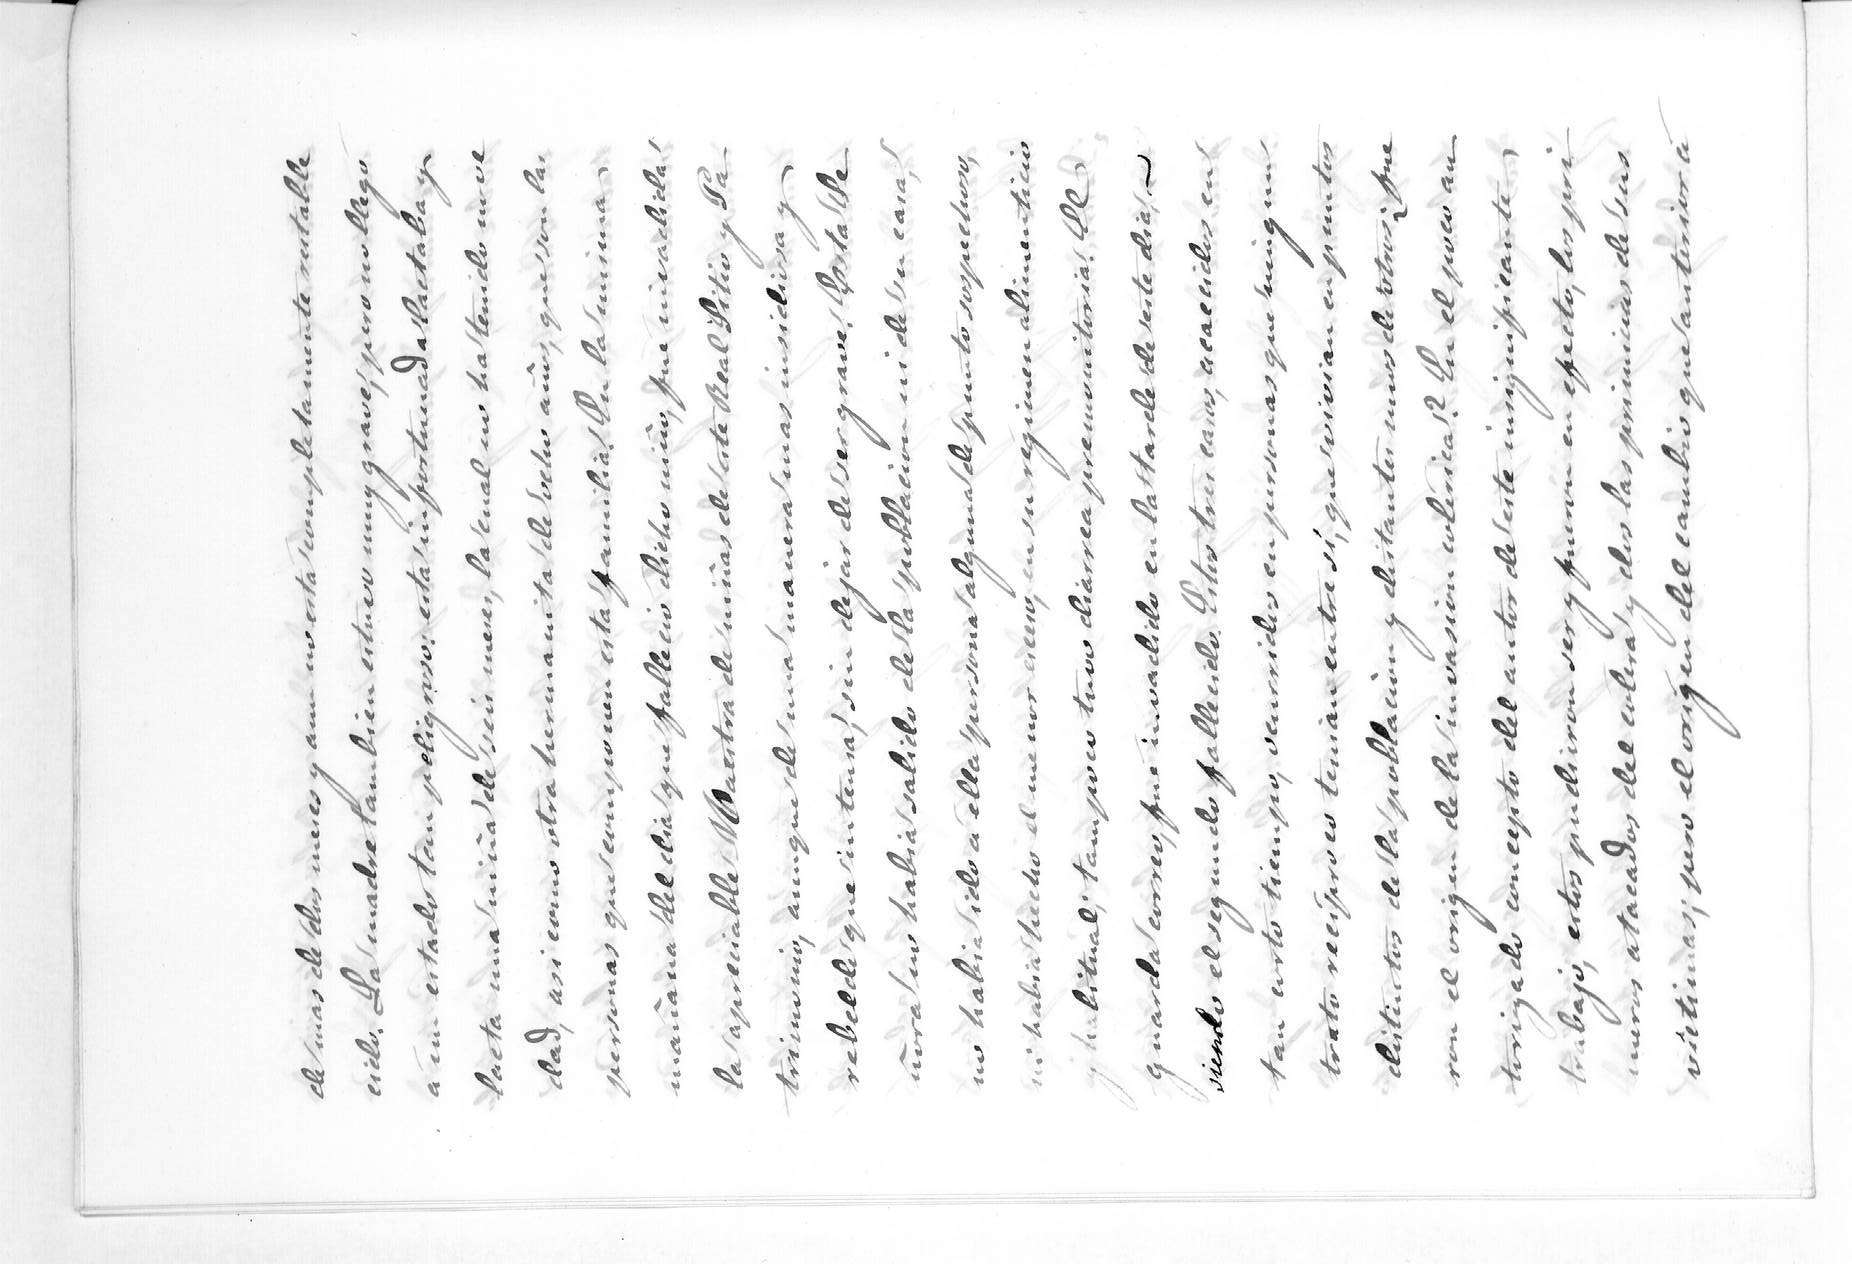 de mas de dos meses y aun no esta completamente restable
cido. La madre tambien estuvo muy grave, pero no llego
a un estado tan peligroso: esta infortunada lactaba y
lacta una niña de seis meses, la cual no ha tenido nove
dad, asi como otra hermanita de ocho años, que son las
personas que componen esta familia. En la misma
mañana del dia que fallecio dicho niño, fue invadida
la apreciable Maestra de niñas de este Real Sitio y Pa
trimonio, aunque de una manera mas insidiosa y
rebelde que intensa, sin dejar de ser grave. Esta Se
ñora no habia salido de la poblacion ni de su casa,
no habia ido a ella persona alguna de punto sospechoso,
ni habia hecho el menor esceso, en su regimen alimenticio
y habitual; tampoco tuvo diarrea premonitoria. El
guarda correo, fue invadido en la tarde de este dia,
siendo el segundo fallecido. Estos tres casos, acaecidos en
tan corto tiempo, ocurridos en personas que ningun
trato reciproco tenian entre sí, que vivian en puntos
distintos de la poblacion y distantes unos de otros ¿fue
ron el origen de la invasion colerica? En el poco au
torizado concepto del autor de este insignificante
trabajo, estos pudieron ser y fueron en efecto, los pri
meros atacados del colera y dos las primicias de sus
víctimas; pero el origen del cambio que anterior á